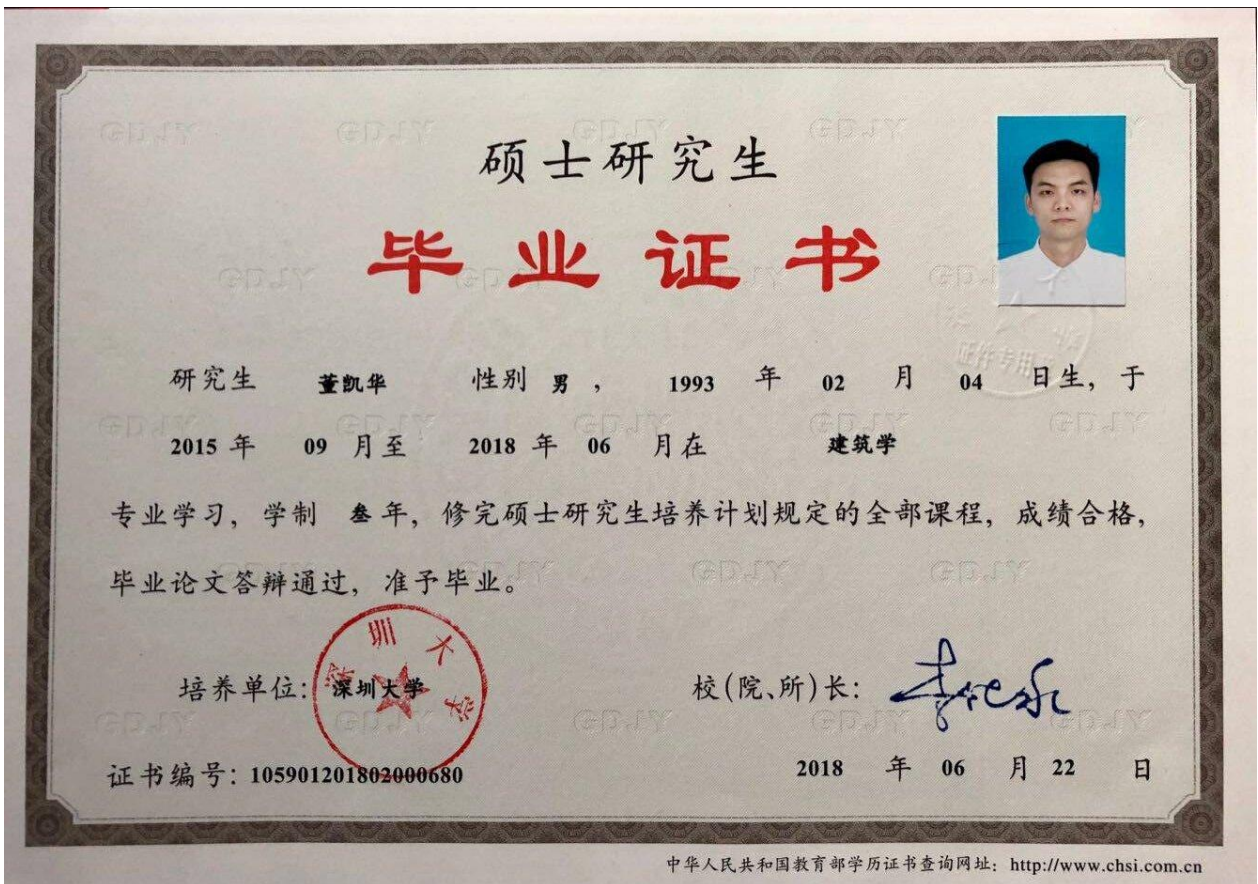 硕士研究生
毕业证书
研究生 董凯华 性别 男 , 1993 年 02 月 04 日生, 于
2015 年 09 月至 2018 年 06 月在 建筑学
专业学习, 学制 叁 年, 修完硕士研究生培养计划规定的全部课程, 成绩合格,
毕业论文答辩通过, 准予毕业。
深圳大学
培养单位: 深圳大学 校(院、所)长:
证书编号: 105901201802000680 2018 年 06 月 22 日
中华人民共和国教育部学历证书查询网址: http://www.chsi.com.cn
证件专用
GDJY